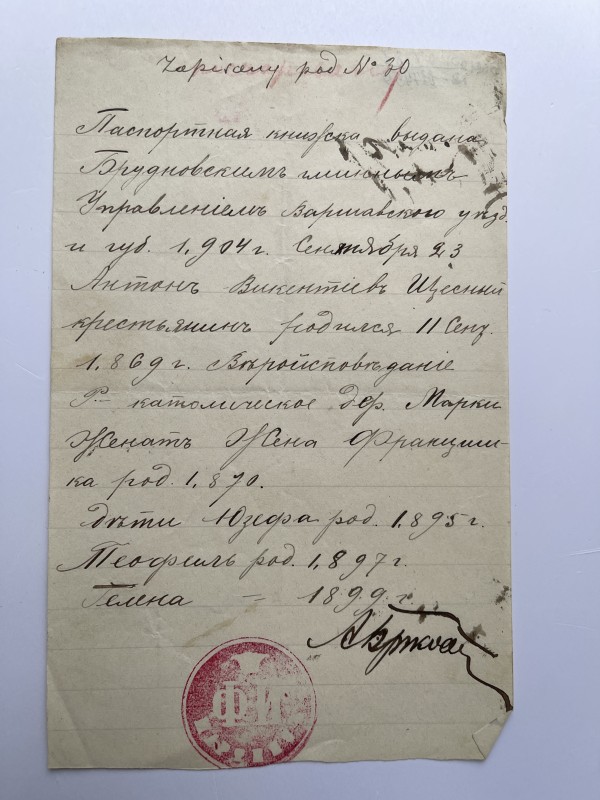 Zapisany pod № 30
Паспортная книжка выдана
Брудновскимъ гминнымъ
Управленіемъ Варшавскаго уѣзд.
и губ. 1,904 г. Сентября 23
Антонъ Викентіевъ Щесный
крестьянинъ родился 11 Сент.
1,869 г. Вѣроисповѣданіе
Р. католическое дер. Марки
Женатъ Жена Францишка
ка род. 1,870.
дѣти Юзефа род. 1,895 г.
Теофиль род. 1,897 г.
Гелена = 1899 г.
ФИ